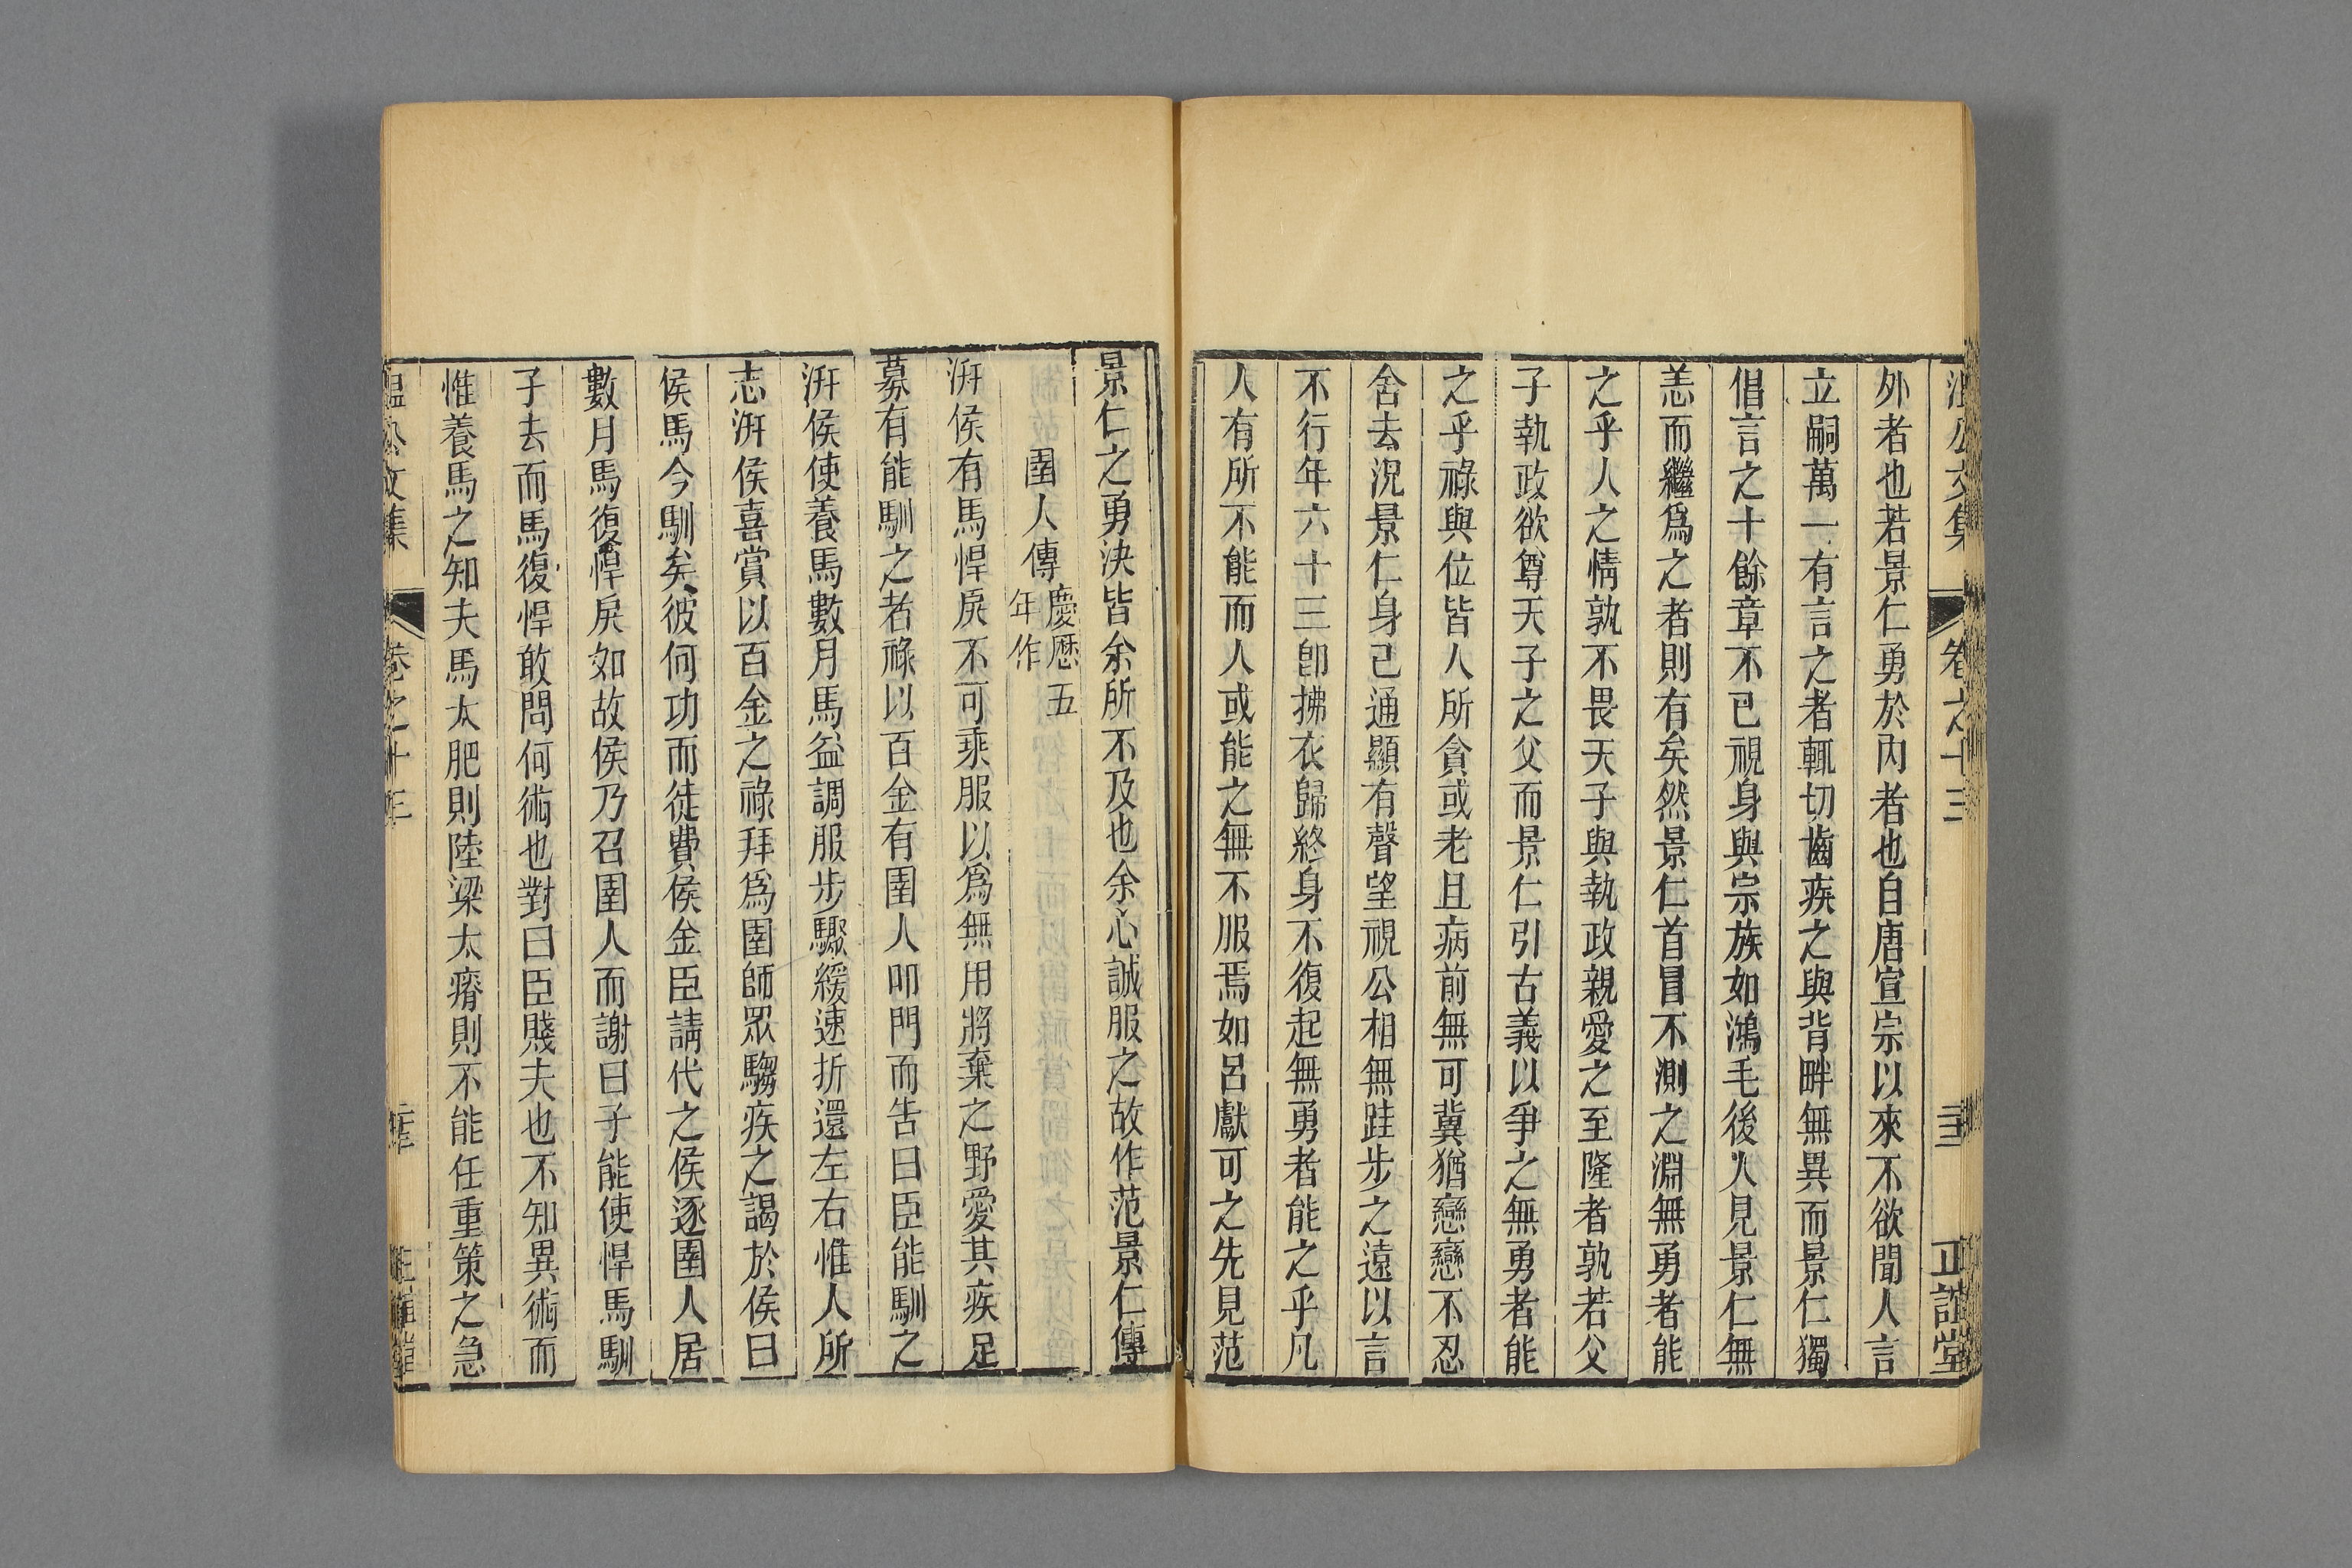 溫公文集 卷之十三 正誼堂
外者也若景仁勇於內者也自唐宣宗以來不欲聞人言
立嗣萬一有言之者輒切齒疾之與背畔無異而景仁獨
倡言之十餘章不已視身與宗族如鴻毛後人見景仁無
恙而繼爲之者則有矣然景仁首冒不測之淵無勇者能
之乎人之情孰不畏天子與執政親愛之至隆者孰若父
子執政欲尊天子之父而景仁引古義以爭之無勇者能
之乎祿與位皆人所貪或老且病前無可冀猶戀戀不忍
舍去況景仁身已通顯有聲望視公相無跬步之遠以言
不行年六十三卽拂衣歸終身不復起無勇者能之乎凡
人有所不能而人或能之無不服焉如呂獻可之先見范
景仁之勇決皆余所不及也余心誠服之故作范景仁傳
圉人傳 慶歷五
年作
洴侯有馬悍戾不可乘服以爲無用將棄之野愛其疾足
募有能馴之者祿以百金有圉人叩門而告曰臣能馴之
洴侯使養馬數月馬益調服步驟緩速折還左右惟人所
志洴侯喜賞以百金之祿拜爲圉師眾騶疾之謁於侯曰
侯馬今馴矣彼何功而徒費侯金臣請代之侯逐圉人居
數月馬復悍戾如故侯乃召圉人而謝曰子能使悍馬馴
子去而馬復悍敢問何術也對曰臣賤夫也不知異術而
惟養馬之知夫馬太肥則陸梁太瘠則不能任重策之急
溫公文集 卷之十三